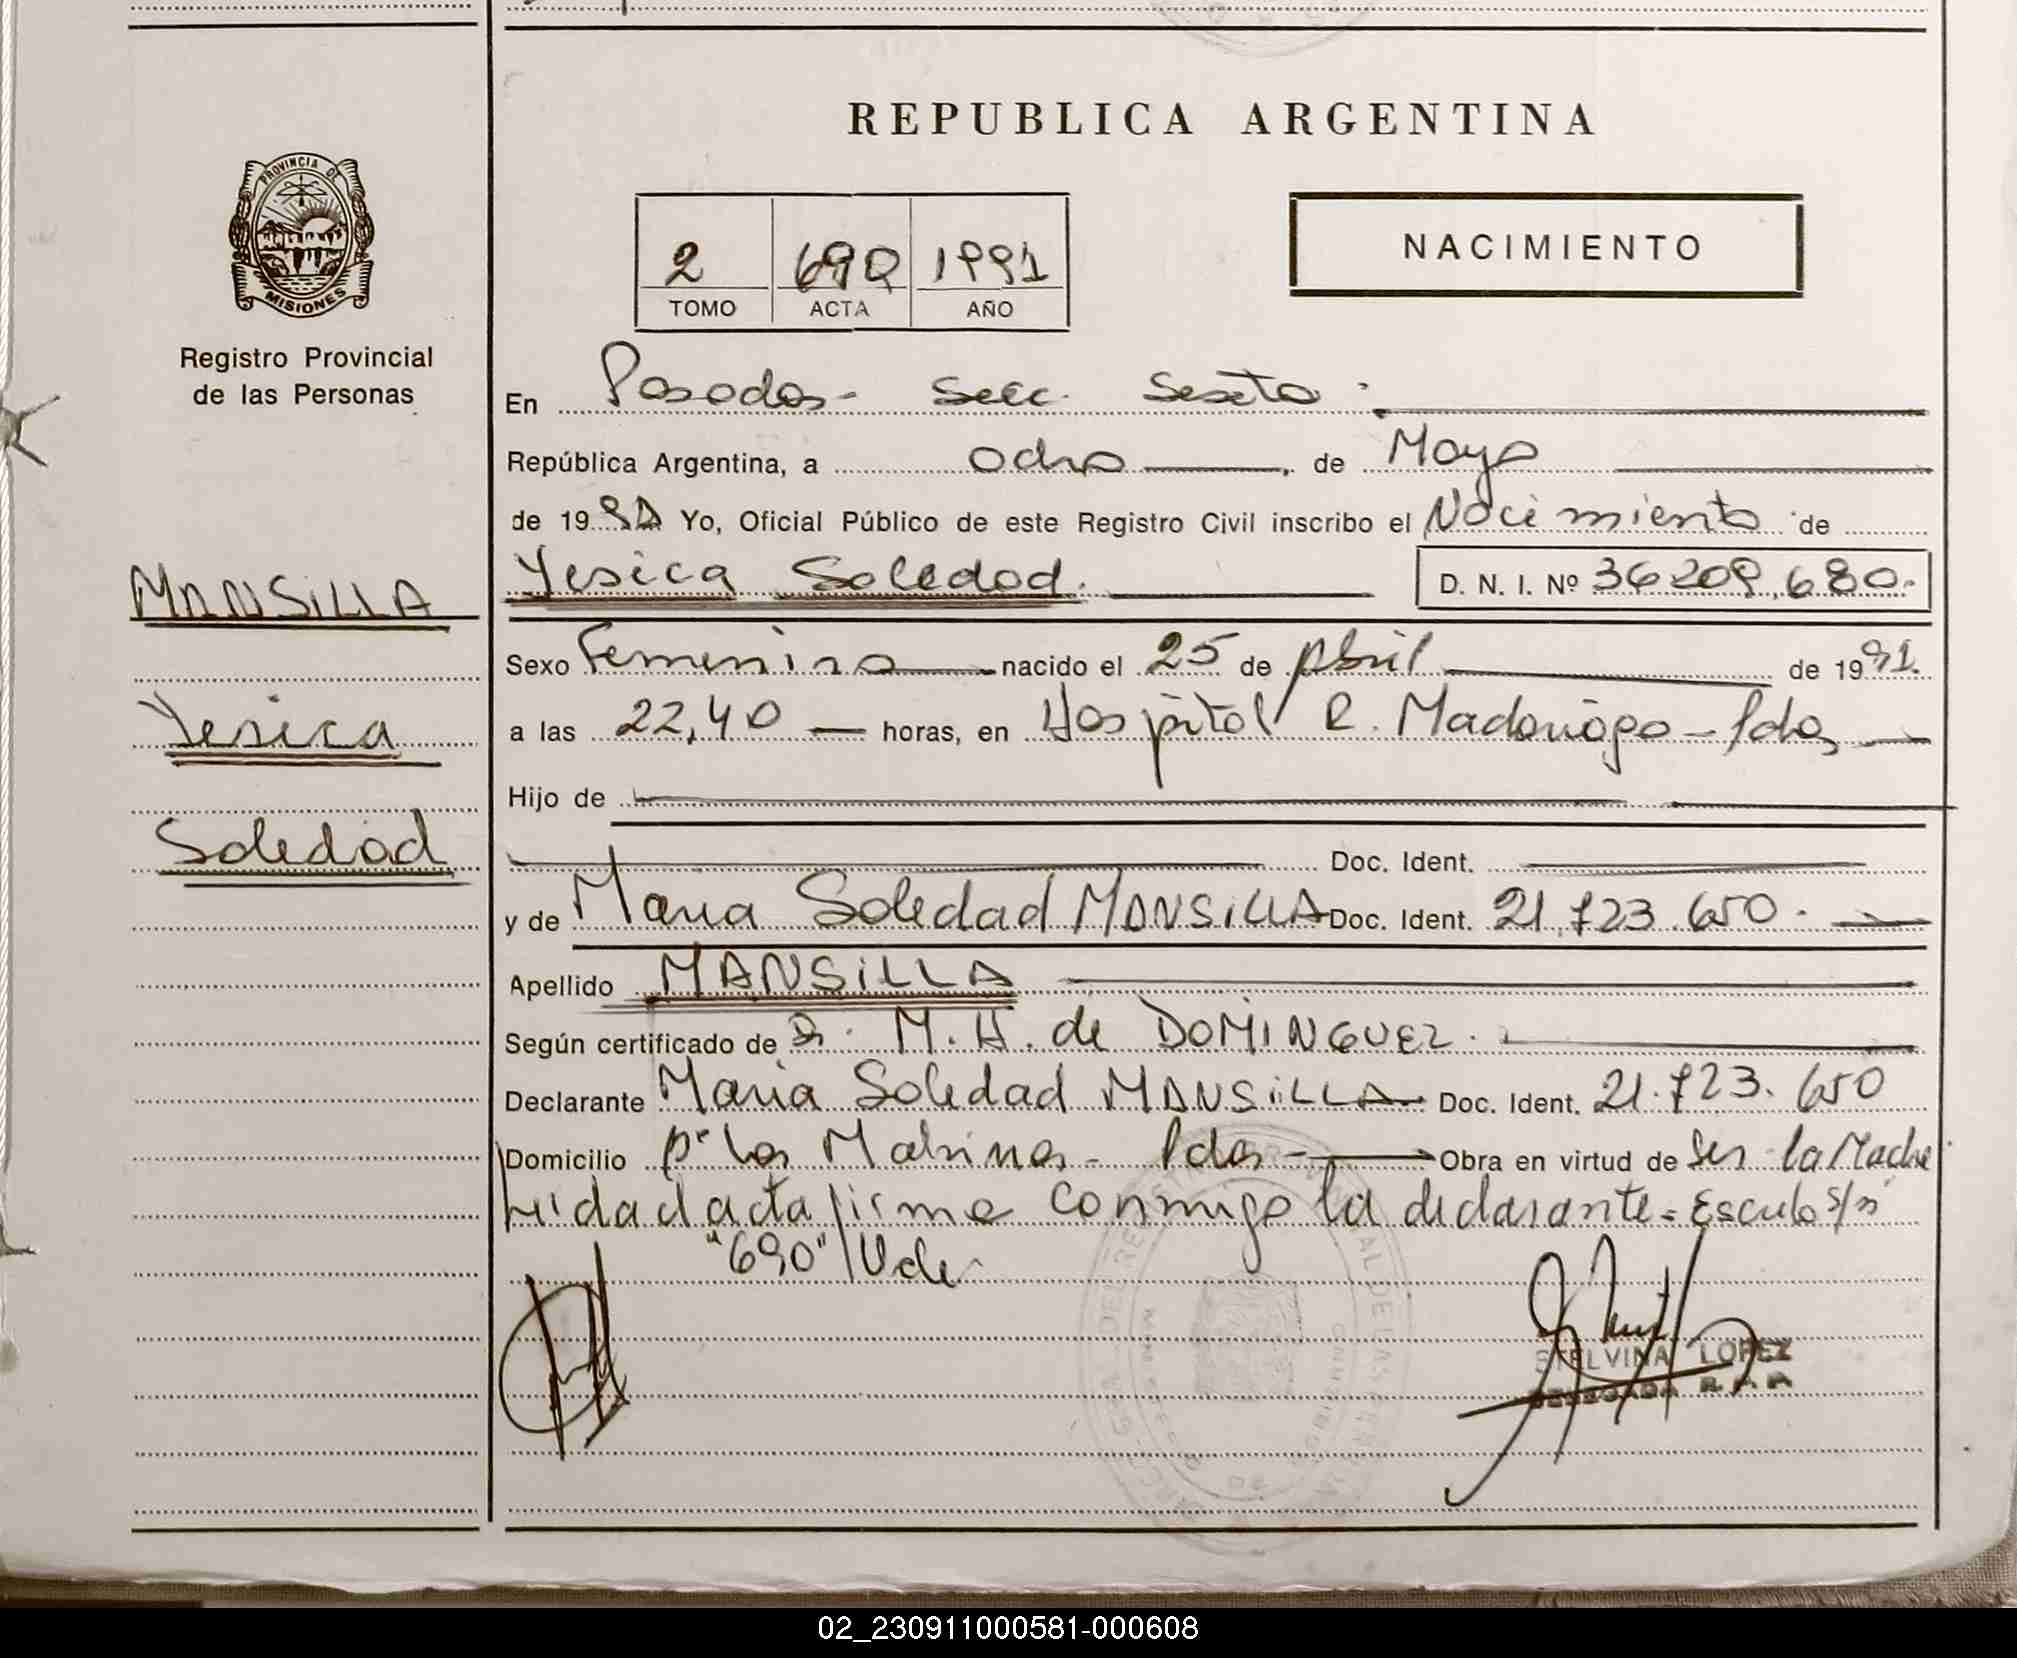 REPUBLICA ARGENTINA
PROVINCIA DE
MISIONES
Registro Provincial
de las Personas
2 690 1991
TOMO ACTA AÑO
NACIMIENTO
En Posadas - Secc. Sexta
República Argentina, a ocho de Mayo
de 1991 Yo, Oficial Público de este Registro Civil inscribo el Nacimiento de
MANSILLA
Yesica Soledad. D. N. I. Nº 36209.680.
Sexo Femenino nacido el 25 de Abril de 1991.
Yesica
a las 22,40 horas, en Hospital R. Madariaga - Pdas
Hijo de
Soledad
Doc. Ident.
y de Maria Soledad MANSILLA Doc. Ident. 21.723.650.
Apellido MANSILLA
Según certificado de Dr. M. H. de DOMINGUEZ.
Declarante Maria Soledad MANSILLA Doc. Ident. 21.723.650
Domicilio Bº Las Malvinas - Pdas - Obra en virtud de ser la Madre
Leida el acta firma conmigo la declarante = s/r
"690" Vale
STELVINA LOPEZ
DELEGADA R.P.P.
02_230911000581-000608